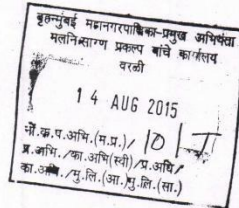 बृहन्मुंबई महानगरपालिका-प्रमुख अभियंता
मलनिःसारण प्रकल्प यांचे कार्यालय
वरळी
14 AUG 2015
प्र.अभि./का.अभि(स्थी)/प्र.अधि/
का.अभि./मु.लि.(आ.)मु.लि.(सा.)